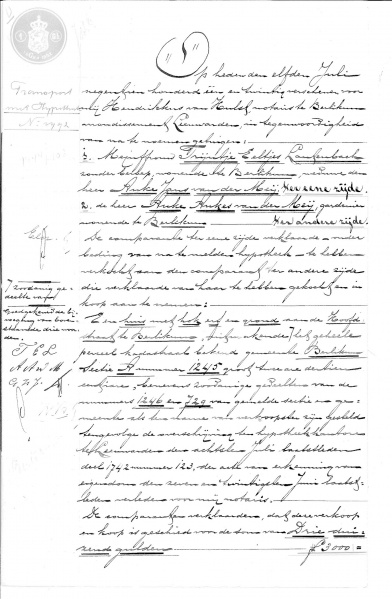 "1"
Op heden den elfden Juli
negentien honderd één en twintig verscheen voor
mij Hendrikus van Hulst, notaris te Berlikum
arrondissement Leeuwarden, in tegenwoordigheid
van na te noemen getuigen:
Transport
met Hypotheek
No 4992
1. Mejuffrouw Trijntje Eeltjes Lautenbach
zonder beroep, wonende te Berlikum, weduwe den
heer Anke Jans van der Meij, ter eene zijde.
2. de heer Anke Ankes van der Meij, gardenier
wonende te Berlikum ter andere zijde.
De comparante ter eene zijde verklaarde, onder
beding van na te melden hypotheek te hebben
verkocht aan den comparant ter andere zijde
die verklaarde van haar te hebben gekocht en in
koop aan te nemen:
Een huis met erf en grond aan de Hoofd
straat te Berlikum, het geheele
perceel kadastraal bekend gemeente Berlikum
Sectie A nummer 1245 groot twee are dertien
centiare, benevens zoodanige gedeelten van de
nummers 1246 en 729 van gemelde sectie en ge-
meente als ten name van verkoopster zijn gesteld
tengevolge de overschrijving ten hypotheekkantore
te Leeuwarden den achtsten Juli laatstleden
deel 1742 nummer 123, der acte van erkenning van
eigendom den zeven en twintigsten Juni laatst-
leden verleden voor mij notaris.
De comparanten verklaarden, dat deze verkoop
en koop is geschied voor de som van Drie dui-
zend gulden f 3000 =